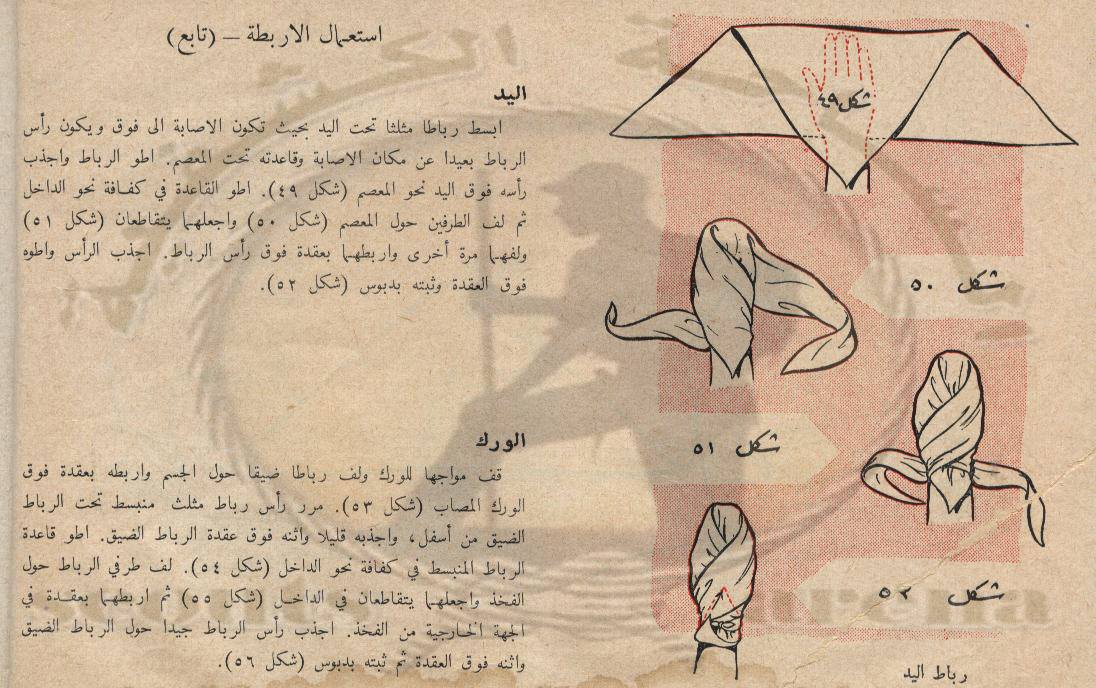 استعمال الاربطة — (تابع)
اليد
ابسط رباطا مثلثا تحت اليد بحيث تكون الاصابة الى فوق ويكون رأس
الرباط بعيدا عن مكان الاصابة وقاعدته تحت المعصم. اطو الرباط واجذب
رأسه فوق اليد نحو المعصم (شكل ٤٩). اطو القاعدة في كفافة نحو الداخل
ثم لف الطرفين حول المعصم (شكل ٥٠) واجعلهما يتقاطعان (شكل ٥١)
ولفهما مرة أخرى واربطهما بعقدة فوق رأس الرباط. اجذب الرأس واطوه
فوق العقدة وثبته بدبوس (شكل ٥٢).
الورك
قف مواجها للورك ولف رباطا ضيقا حول الجسم واربطه بعقدة فوق
الورك المصاب (شكل ٥٣). مرر رأس رباط مثلث منبسط تحت الرباط
الضيق من أسفل، واجذبه قليلا واثنه فوق عقدة الرباط الضيق. اطو قاعدة
الرباط المنبسط في كفافة نحو الداخل (شكل ٥٤). لف طرفي الرباط حول
الفخذ واجعلهما يتقاطعان في الداخل (شكل ٥٥) ثم اربطهما بعقدة في
الجهة الخارجية من الفخذ. اجذب رأس الرباط جيدا حول الرباط الضيق
واثنه فوق العقدة ثم ثبته بدبوس (شكل ٥٦).
شكل ٤٩
شكل ٥٠
شكل ٥١
شكل ٥٢
رباط اليد